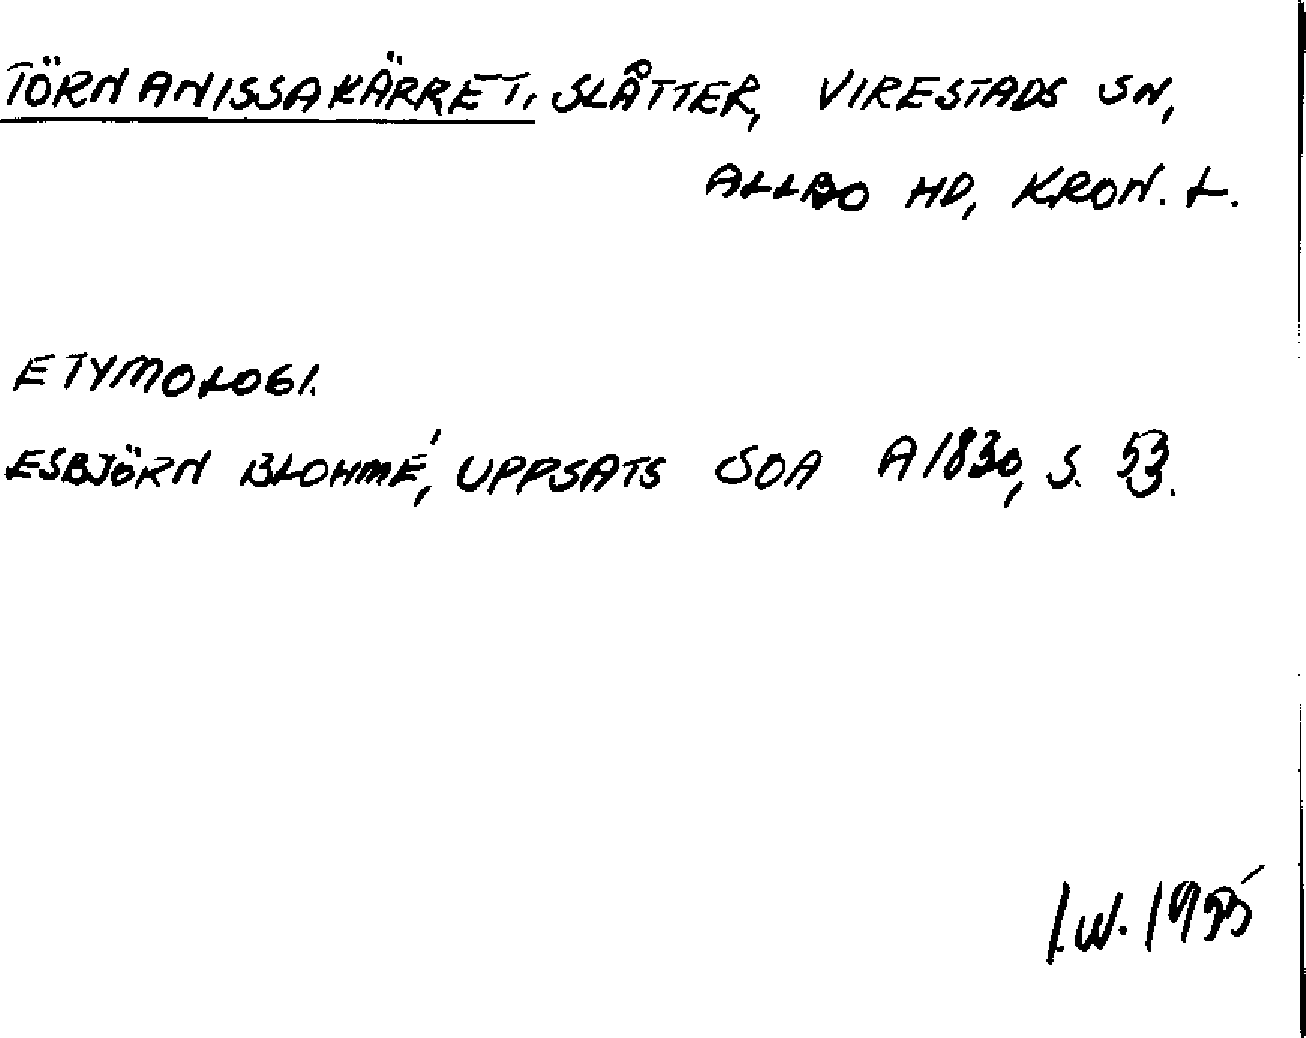 TÖRNANISSAKÄRRET, SLÅTTER, VIRESTADS SN,
ALLBO HD, KRON. L.
ETYMOLOGI.
ESBJÖRN BLOHMÉ, UPPSATS SOA A1830, S. 53.
I.W. 1985